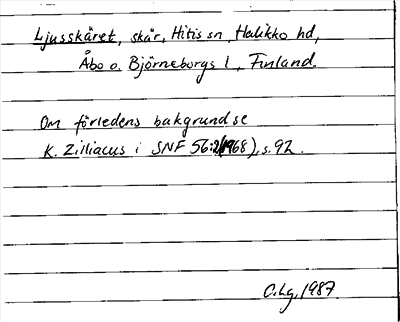 Ljusskäret, skär, Hitis sn, Halikko hd,
Åbo o. Björneborgs l, Finland.
Om förledens bakgrund se
K. Zilliacus i SNF 56:2(1968), s. 92.
C.Lg, 1987